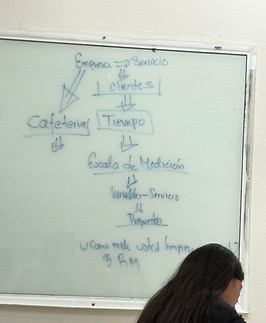 Empresa ⇒ Servicio
Clientes
Cafeteria Tiempo
Escala de Medición
Variables - Servicio
Preguntas
usted
B R M